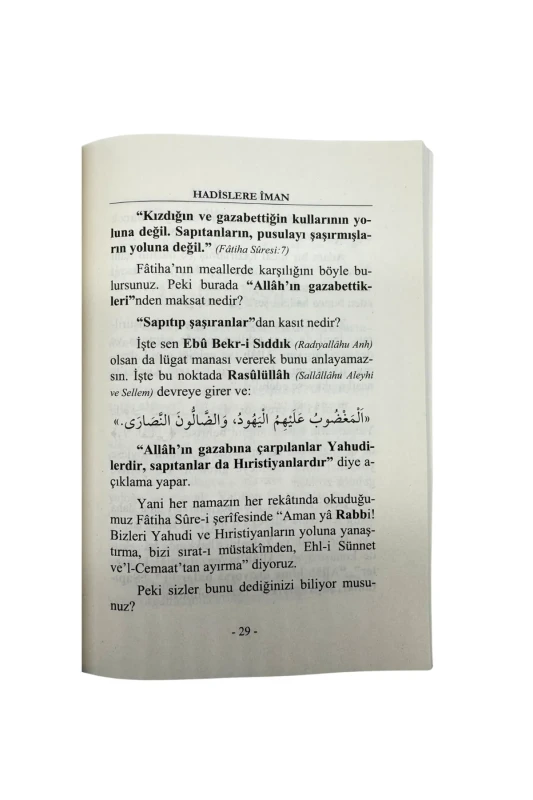 HADİSLERE ÎMAN
“Kızdığın ve gazabettiğin kullarının yo-
luna değil. Sapıtanların, pusulayı şaşırmışla-
rın yoluna değil.” (Fâtiha Sûresi:7)
Fâtiha’nın meallerde karşılığını böyle bu-
lursunuz. Peki burada “Allâh’ın gazabettik-
leri”nden maksat nedir?
“Sapıtıp şaşıranlar”dan kasıt nedir?
İşte sen Ebû Bekr-i Sıddık (Radıyallâhu Anh)
olsan da lügat manası vererek bunu anlayamaz-
sın. İşte bu noktada Rasûlüllâh (Sallâllâhu Aleyhi
ve Sellem) devreye girer ve:
«اَلْمَغْضُوبُ عَلَيْهِمُ الْيَهُودُ، وَالضَّالُّونَ النَّصَارَى.»
“Allâh’ın gazabına çarpılanlar Yahudi-
lerdir, sapıtanlar da Hıristiyanlardır” diye a-
çıklama yapar.
Yani her namazın her rekâtında okuduğu-
muz Fâtiha Sûre-i şerîfesinde “Aman yâ Rabbi!
Bizleri Yahudi ve Hıristiyanların yoluna yanaş-
tırma, bizi sırat-ı müstakîmden, Ehl-i Sünnet
ve’l-Cemaat’tan ayırma” diyoruz.
Peki sizler bunu dediğinizi biliyor musu-
nuz?
- 29 -